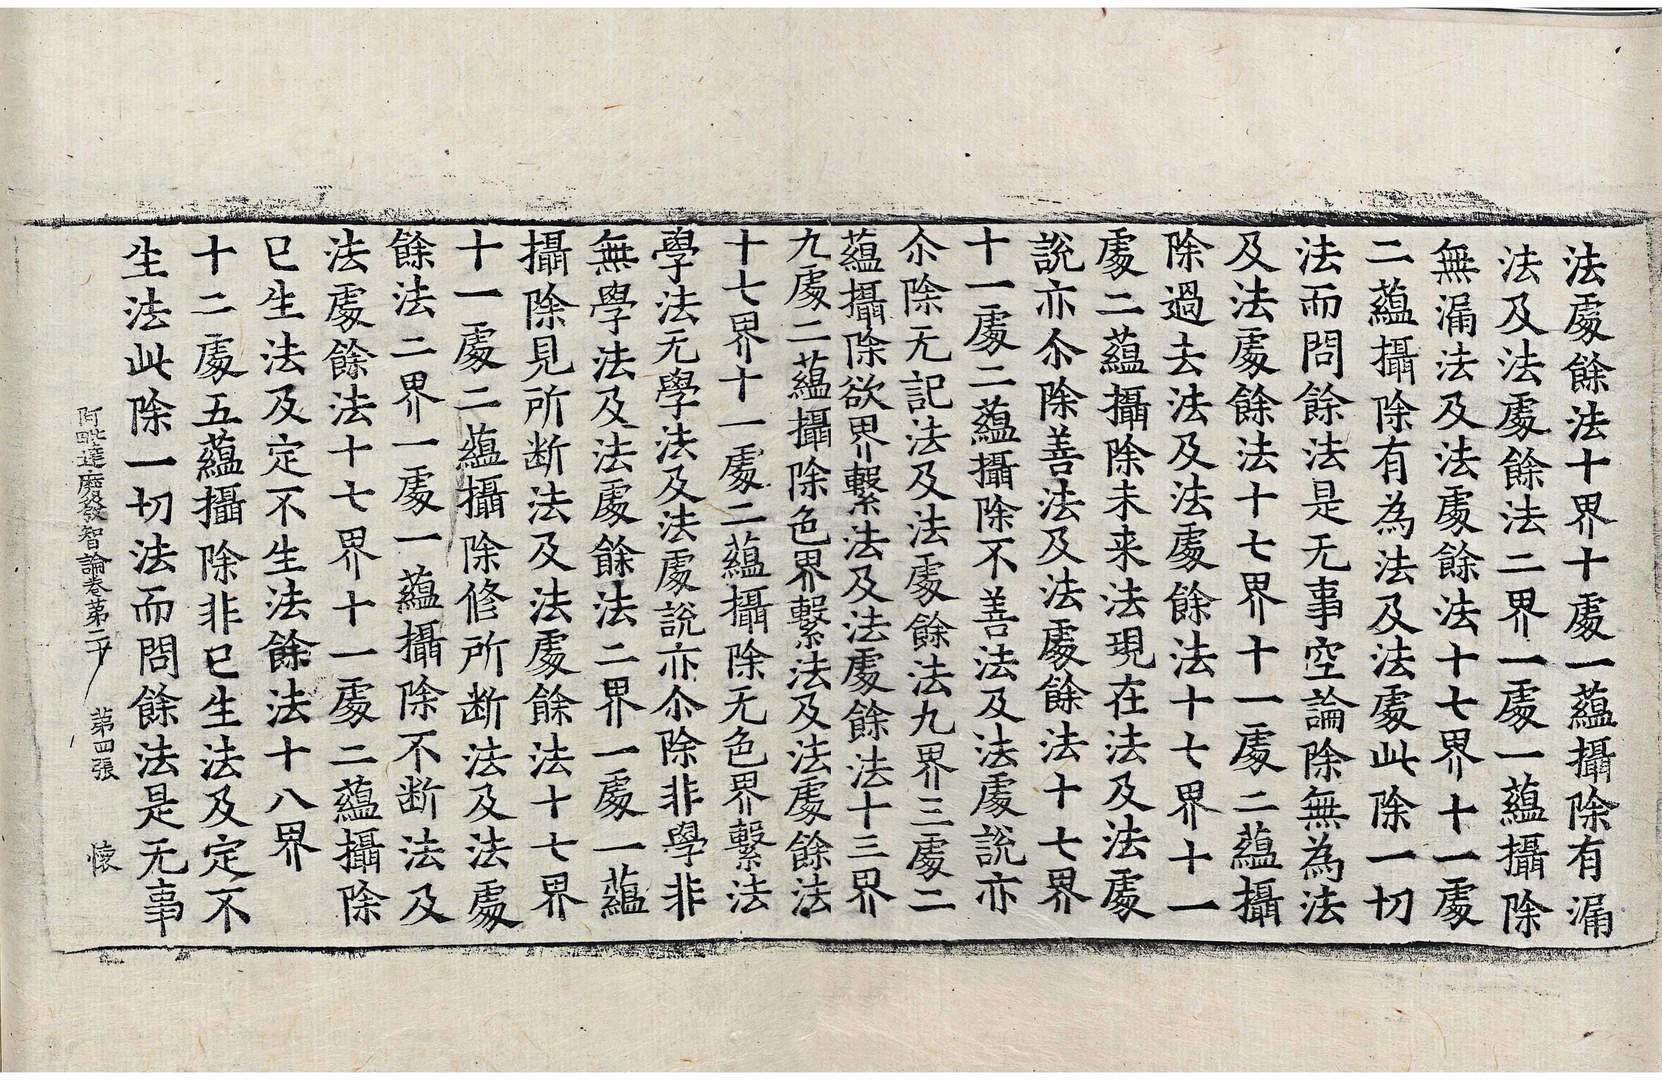 法處餘法十界十處一蘊攝除有漏
法及法處餘法二界一處一蘊攝除
無漏法及法處餘法十七界十一處
二蘊攝除有為法及法處此除一切
法而問餘法是无事空論除無為法
及法處餘法十七界十一處二蘊攝
除過去法及法處餘法十七界十一
處二蘊攝除未来法現在法及法處
說亦尒除善法及法處餘法十七界
十一處二蘊攝除不善法及法處說亦
尒除无記法及法處餘法九界三處二
蘊攝除欲界繫法及法處餘法十三界
九處二蘊攝除色界繫法及法處餘法
十七界十一處二蘊攝除无色界繫法
學法无學法及法處說亦尒除非學非
無學法及法處餘法二界一處一蘊
攝除見所断法及法處餘法十七界
十一處二蘊攝除修所断法及法處
餘法二界一處一蘊攝除不断法及
法處餘法十七界十一處二蘊攝除
已生法及定不生法餘法十八界
十二處五蘊攝除非已生法及定不
生法此除一切法而問餘法是无事
阿毗達磨發智論卷第二十 第四張 懷